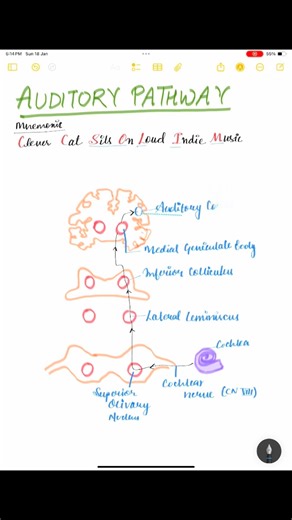 6:14 PM Sun 14 Jan
55%
AUDITORY PATHWAY
Mnemonic
Clever Cat Sits On Loud Indie Music
Auditory Co
Medial Geniculate Body
Inferior Colliculus
Lateral Leminiscus
Cochlea
Superior Olivary Nucleus
Cochlear nerve (CN VIII)